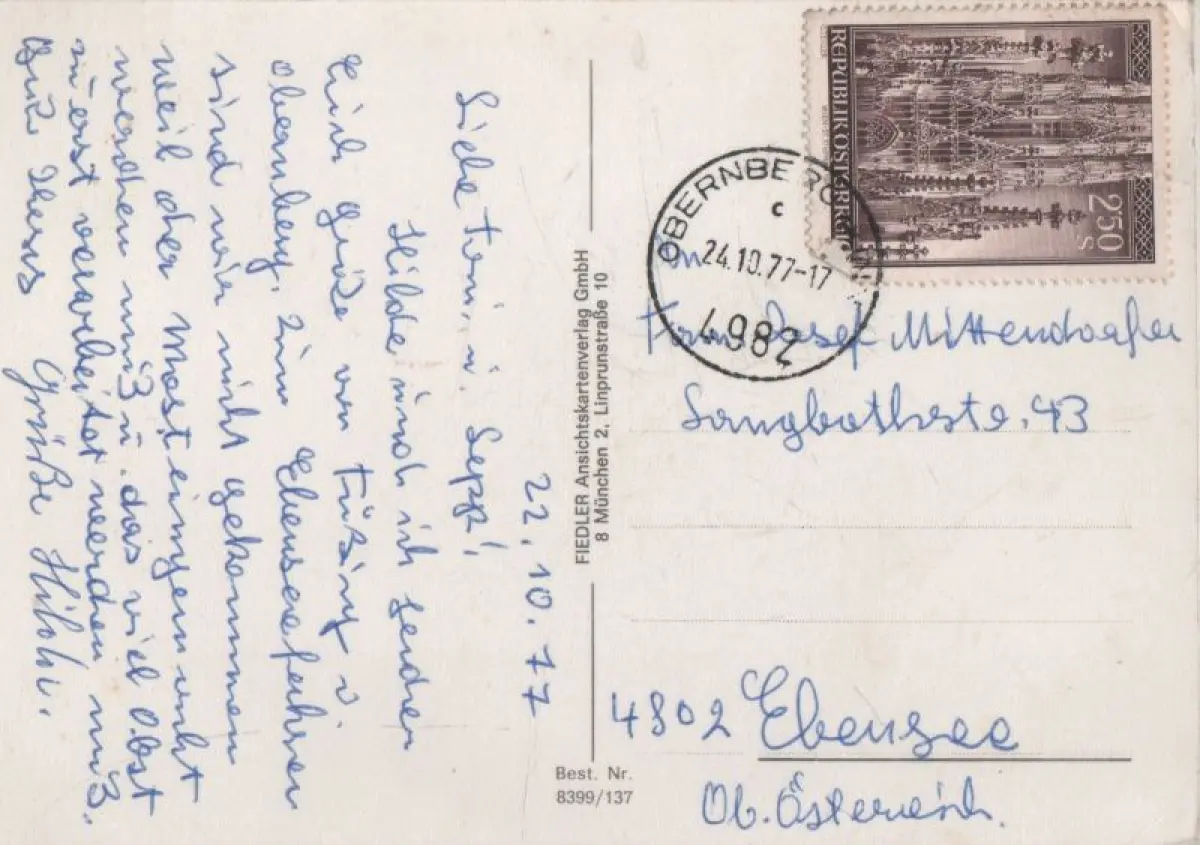 22.10.77
Liebe Toni, u. Sepp!
Hilde und ich senden
Euch grüße von Füßing u.
Obernberg, zum Ebensee fahren
sind wir nicht gekommen
weil der Most eingemacht
werden muß u. das viel Obst
zu erst verarbeitet werden muß.
Grüße Hilde.
FIEDLER Ansichtskartenverlag GmbH
8 München 2, Linprunstraße 10
Best. Nr.
8399/137
REPUBLIK ÖSTERREICH
2.50
S
OBERNBERG
c
24.10.77-17
4982
Josef Mittendorfer
Langbathstr. 43
4802 Ebensee
Ob. Österreich.